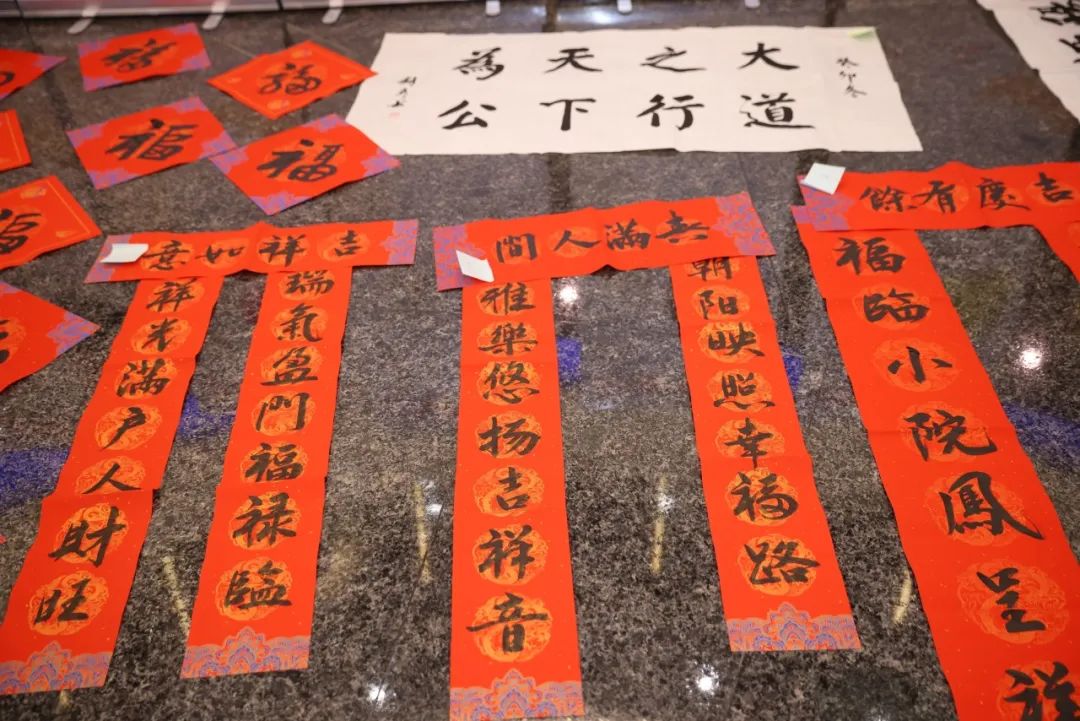 癸卯冬
大道
之行
天下
為公
福
福
福
福
福
吉祥如意
瑞氣盈門福禄臨
祥光满户人財旺
喜满人間
朝阳映照幸福路
雅樂悠扬吉祥音
吉慶有餘
福臨小院鳳呈祥